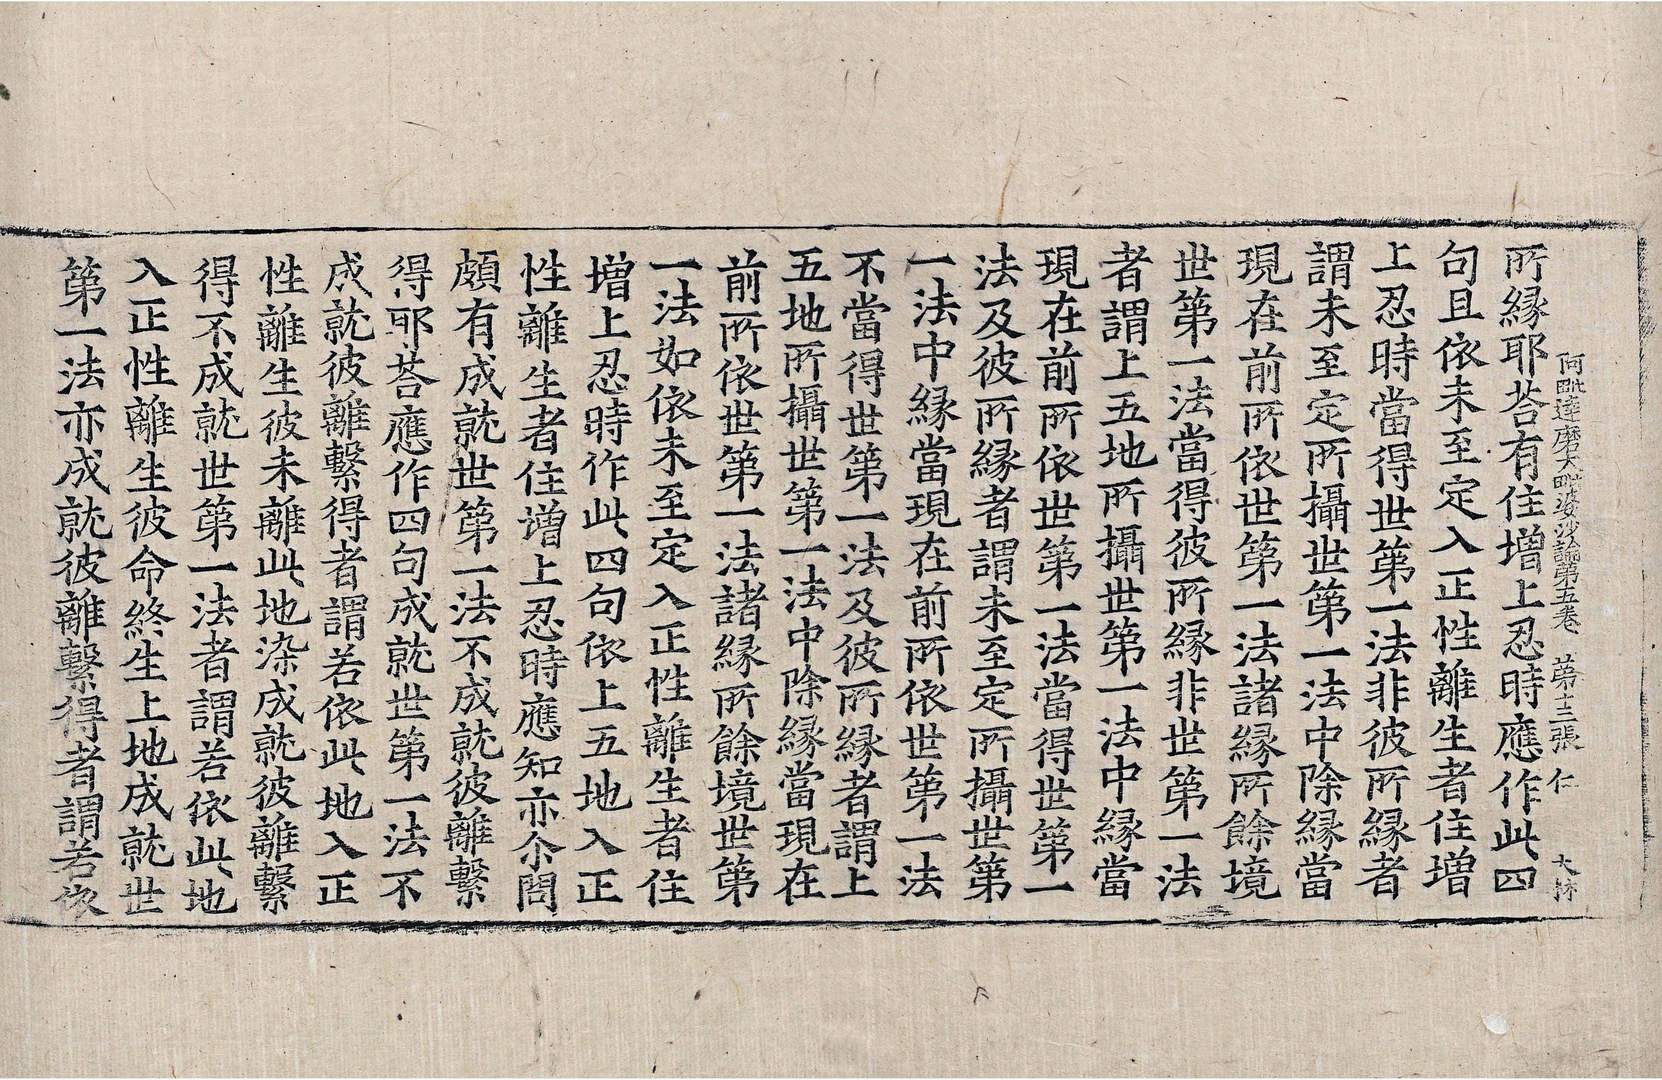 阿毗達磨大毗婆沙論第五卷　第十三張　仁　大林
所縁耶荅有住増上忍時應作此四
句且依未至定入正性離生者住増
上忍時當得世第一法非彼所縁者
謂未至定所攝世第一法中除縁當
現在前所依世第一法諸縁所餘境
世第一法當得彼所縁非世第一法
者謂上五地所攝世第一法中縁當
現在前所依世第一法當得世第一
法及彼所縁者謂未至定所攝世第
一法中縁當現在前所依世第一法
不當得世第一法及彼所縁者謂上
五地所攝世第一法中除縁當現在
前所依世第一法諸縁所餘境世第
一法如依未至定入正性離生者住
増上忍時作此四句依上五地入正
性離生者住増上忍時應知亦尒問
頗有成就世第一法不成就彼離繫
得耶荅應作四句成就世第一法不
成就彼離繫得者謂若依此地入正
性離生彼未離此地染成就彼離繫
得不成就世第一法者謂若依此地
入正性離生彼命終生上地成就世
第一法亦成就彼離繫得者謂若依